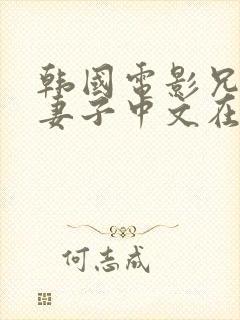 韩国电影兄
妻子中文在
何志成